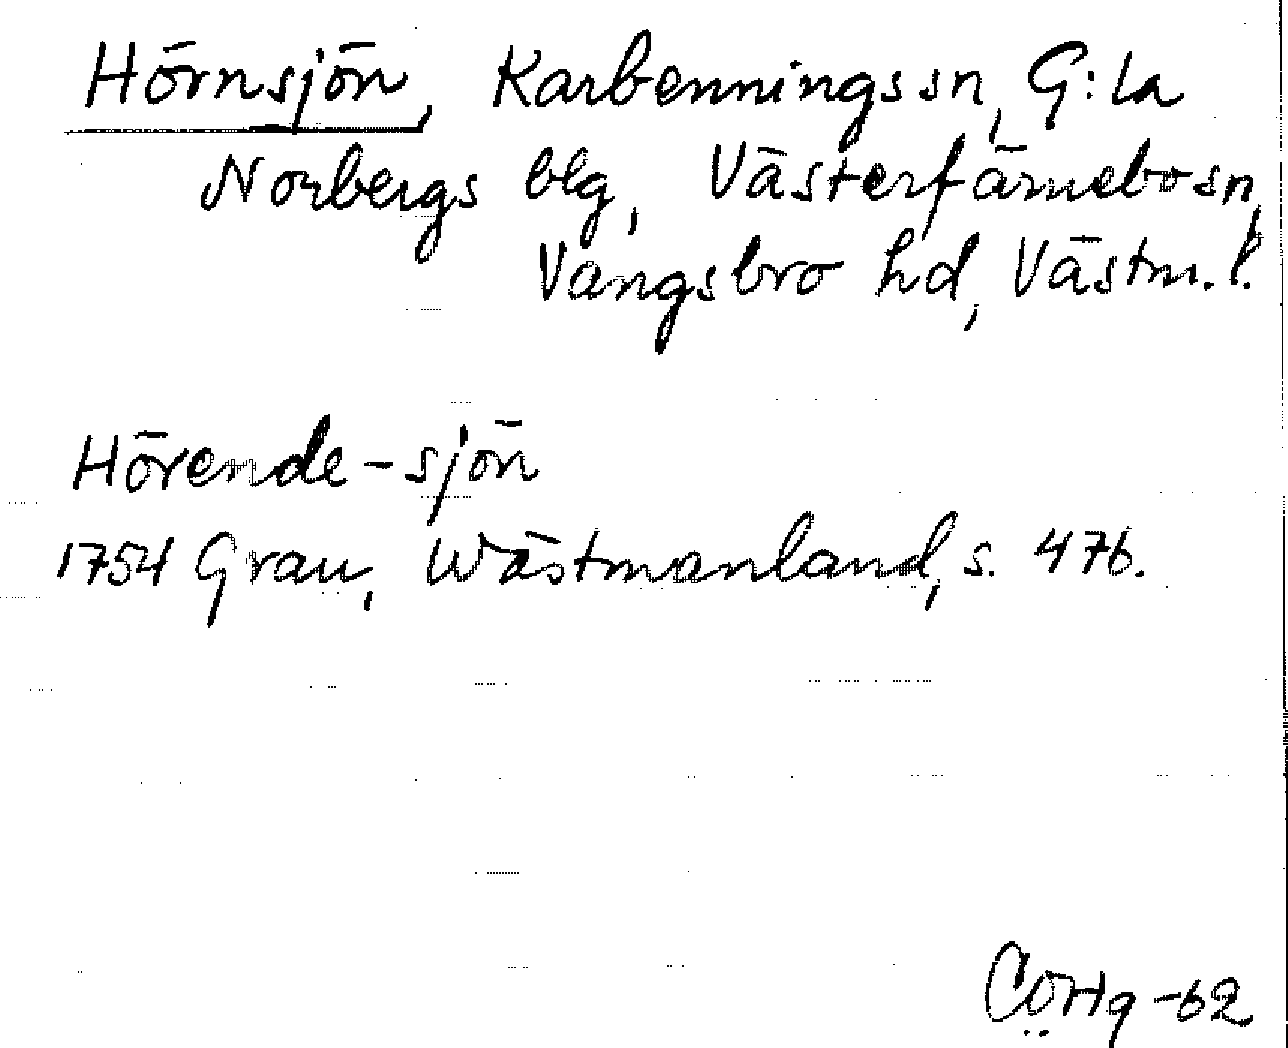 Hörnsjön, Karbennings sn, G:la
Norbergs blg, Västerfärnebo sn,
Vangsbro hd, Västm. l.
Hörende-sjön
1754 Grau, Wästmanland, s. 476.
-62